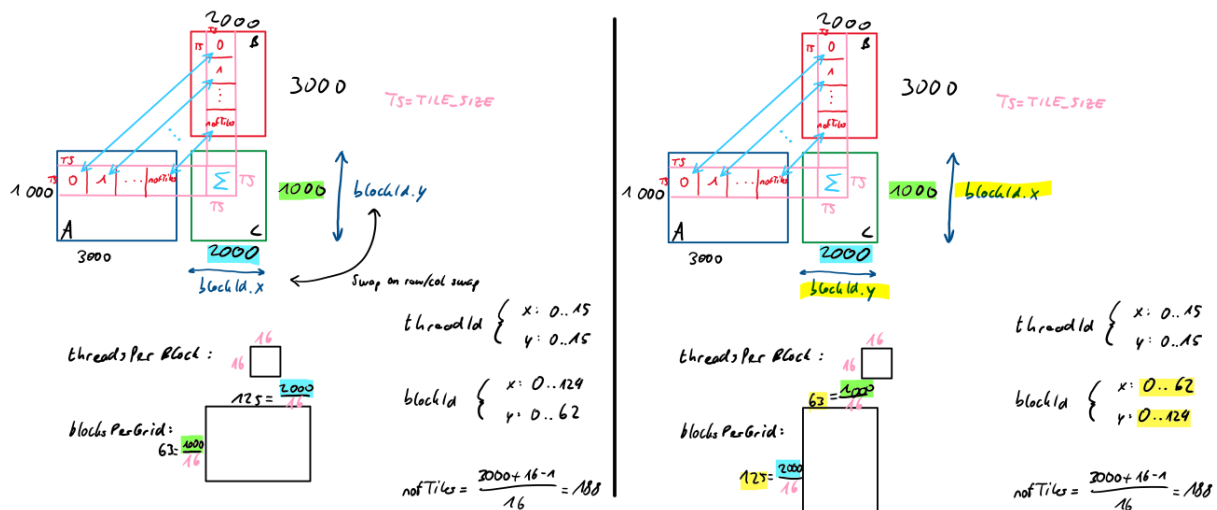 2000
TS
TS 0 B
1
⋮
nofTiles
3000
TS=TILE_SIZE
TS
TS 0 1 ... nofTiles
Σ TS
TS
1000
1000
blockId.y
A
C
3000
2000
blockId.x
Swap on row/col swap
threadId { x: 0..15
y: 0..15
threadsPerBlock:
16
16
blockId { x: 0..124
y: 0..62
125= 2000
16
blocksPerGrid:
63= 1000
16
nofTiles = 3000+16-1 = 188
16
2000
TS
TS 0 B
1
⋮
nofTiles
3000
TS=TILE_SIZE
TS
TS 0 1 ... nofTiles
Σ TS
TS
1000
1000
blockId.x
A
C
3000
2000
blockId.y
threadId { x: 0..15
y: 0..15
threadsPerBlock:
16
16
blockId { x: 0..62
y: 0..124
63= 1000
16
blocksPerGrid:
125= 2000
16
nofTiles = 3000+16-1 = 188
16